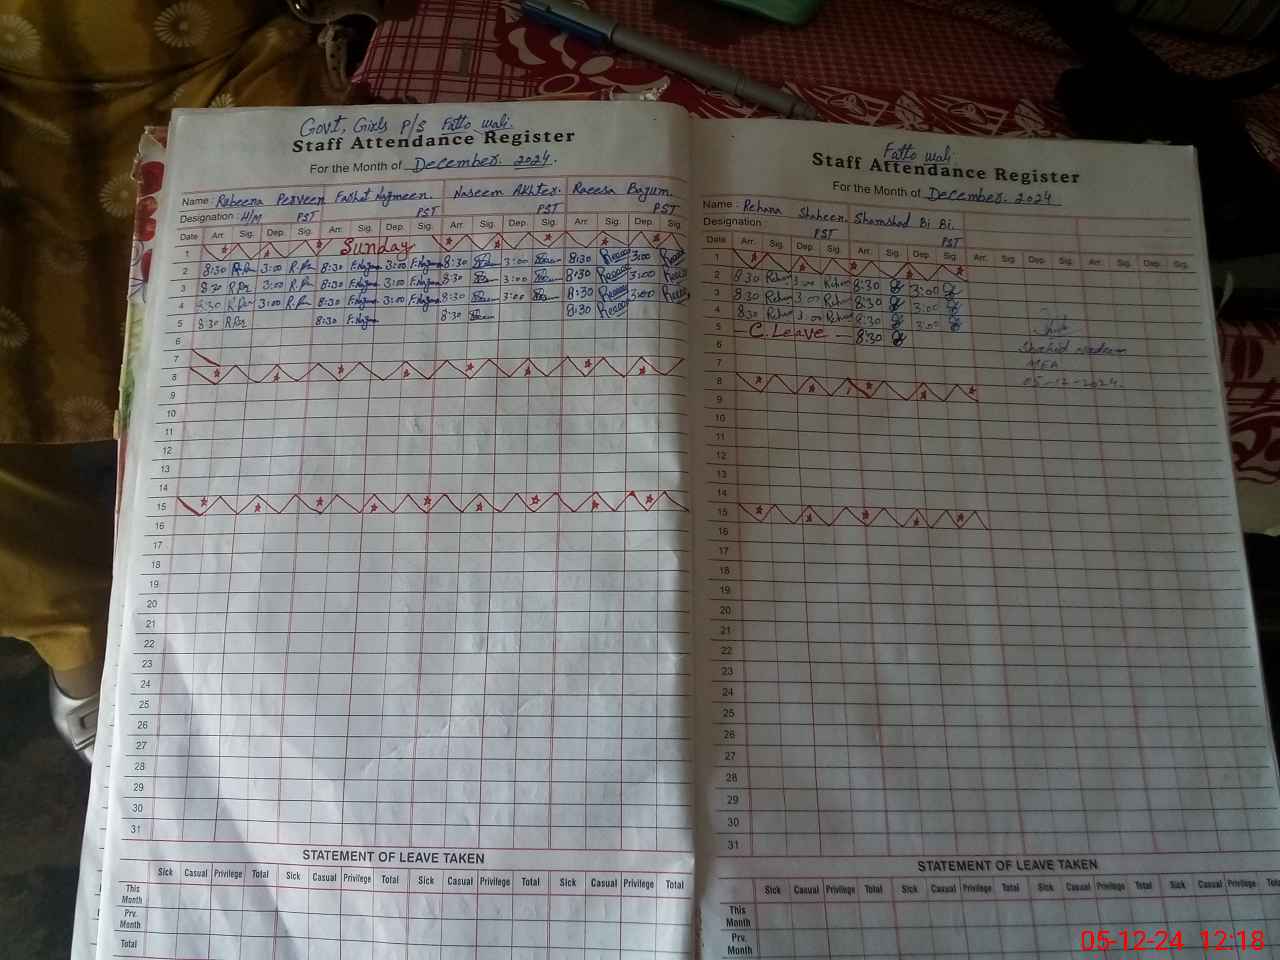 Govt, Girls P/S Fatto wali.
Staff Attendance Register
For the Month of December. 2024.
Name : Rabeena Perveen Farhat Najmeen. Naseem Akhter. Raeesa Bajum.
Designation H/M PST PST PST PST
Date Arr. Sig. Dep. Sig. Arr. Sig. Dep. Sig. Arr. Sig. Dep. Sig. Arr. Sig. Dep. Sig.
1 Sunday
2 8:30 3:00 8:30 3:00 8:30 3:00 8:30 3:00
3 8:30 3:00 8:30 3:00 8:30 3:00 8:30 3:00
4 8:30 3:00 8:30 3:00 8:30 3:00 8:30 3:00
5 8:30 8:30 8:30 8:30
6
7
8
9
10
11
12
13
14
15
16
17
18
19
20
21
22
23
24
25
26
27
28
29
30
31
STATEMENT OF LEAVE TAKEN
Sick Casual Privilege Total Sick Casual Privilege Total Sick Casual Privilege Total Sick Casual Privilege Total
This Month
Prv. Month
Total
Fatto wali.
Staff Attendance Register
For the Month of December. 2024
Name : Rehana Shaheen Shamshad Bi Bi.
Designation PST PST
Date Arr. Sig. Dep. Sig. Arr. Sig. Dep. Sig. Arr. Sig. Dep. Sig. Arr. Sig. Dep. Sig.
1
2 8:30 3:00 8:30 3:00
3 8:30 3:00 8:30 3:00
4 8:30 3:00 8:30 3:00
5 - C. Leave - 8:30
6
7
8
9
10
11
12
13
14
15
16
17
18
19
20
21
22
23
24
25
26
27
28
29
30
31
Shahid Nadeem
MEA
05-12-2024.
STATEMENT OF LEAVE TAKEN
Sick Casual Privilege Total Sick Casual Privilege Total Sick Casual Privilege Total Sick Casual Privilege Total
This Month
Prv. Month
05-12-24 12:18